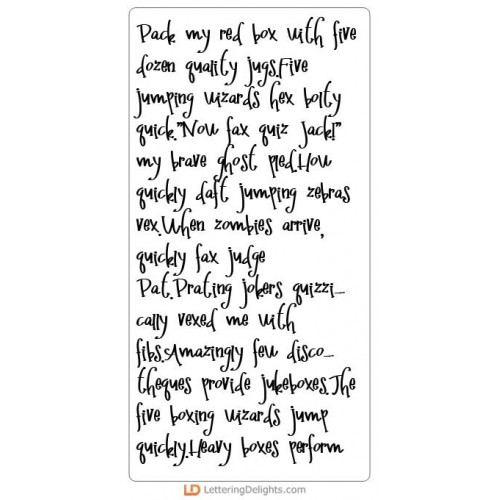 Pack my red box with five
dozen quality jugs.Five
jumping wizards hex bolty
quick."Now fax quiz Jack!"
my brave ghost pled.How
quickly daft jumping zebras
vex.When zombies arrive,
quickly fax judge
Pat.Prating jokers quizzi-
cally vexed me with
fibs.Amazingly few disco-
theques provide jukeboxes.The
five boxing wizards jump
quickly.Heavy boxes perform
LD LetteringDelights.com